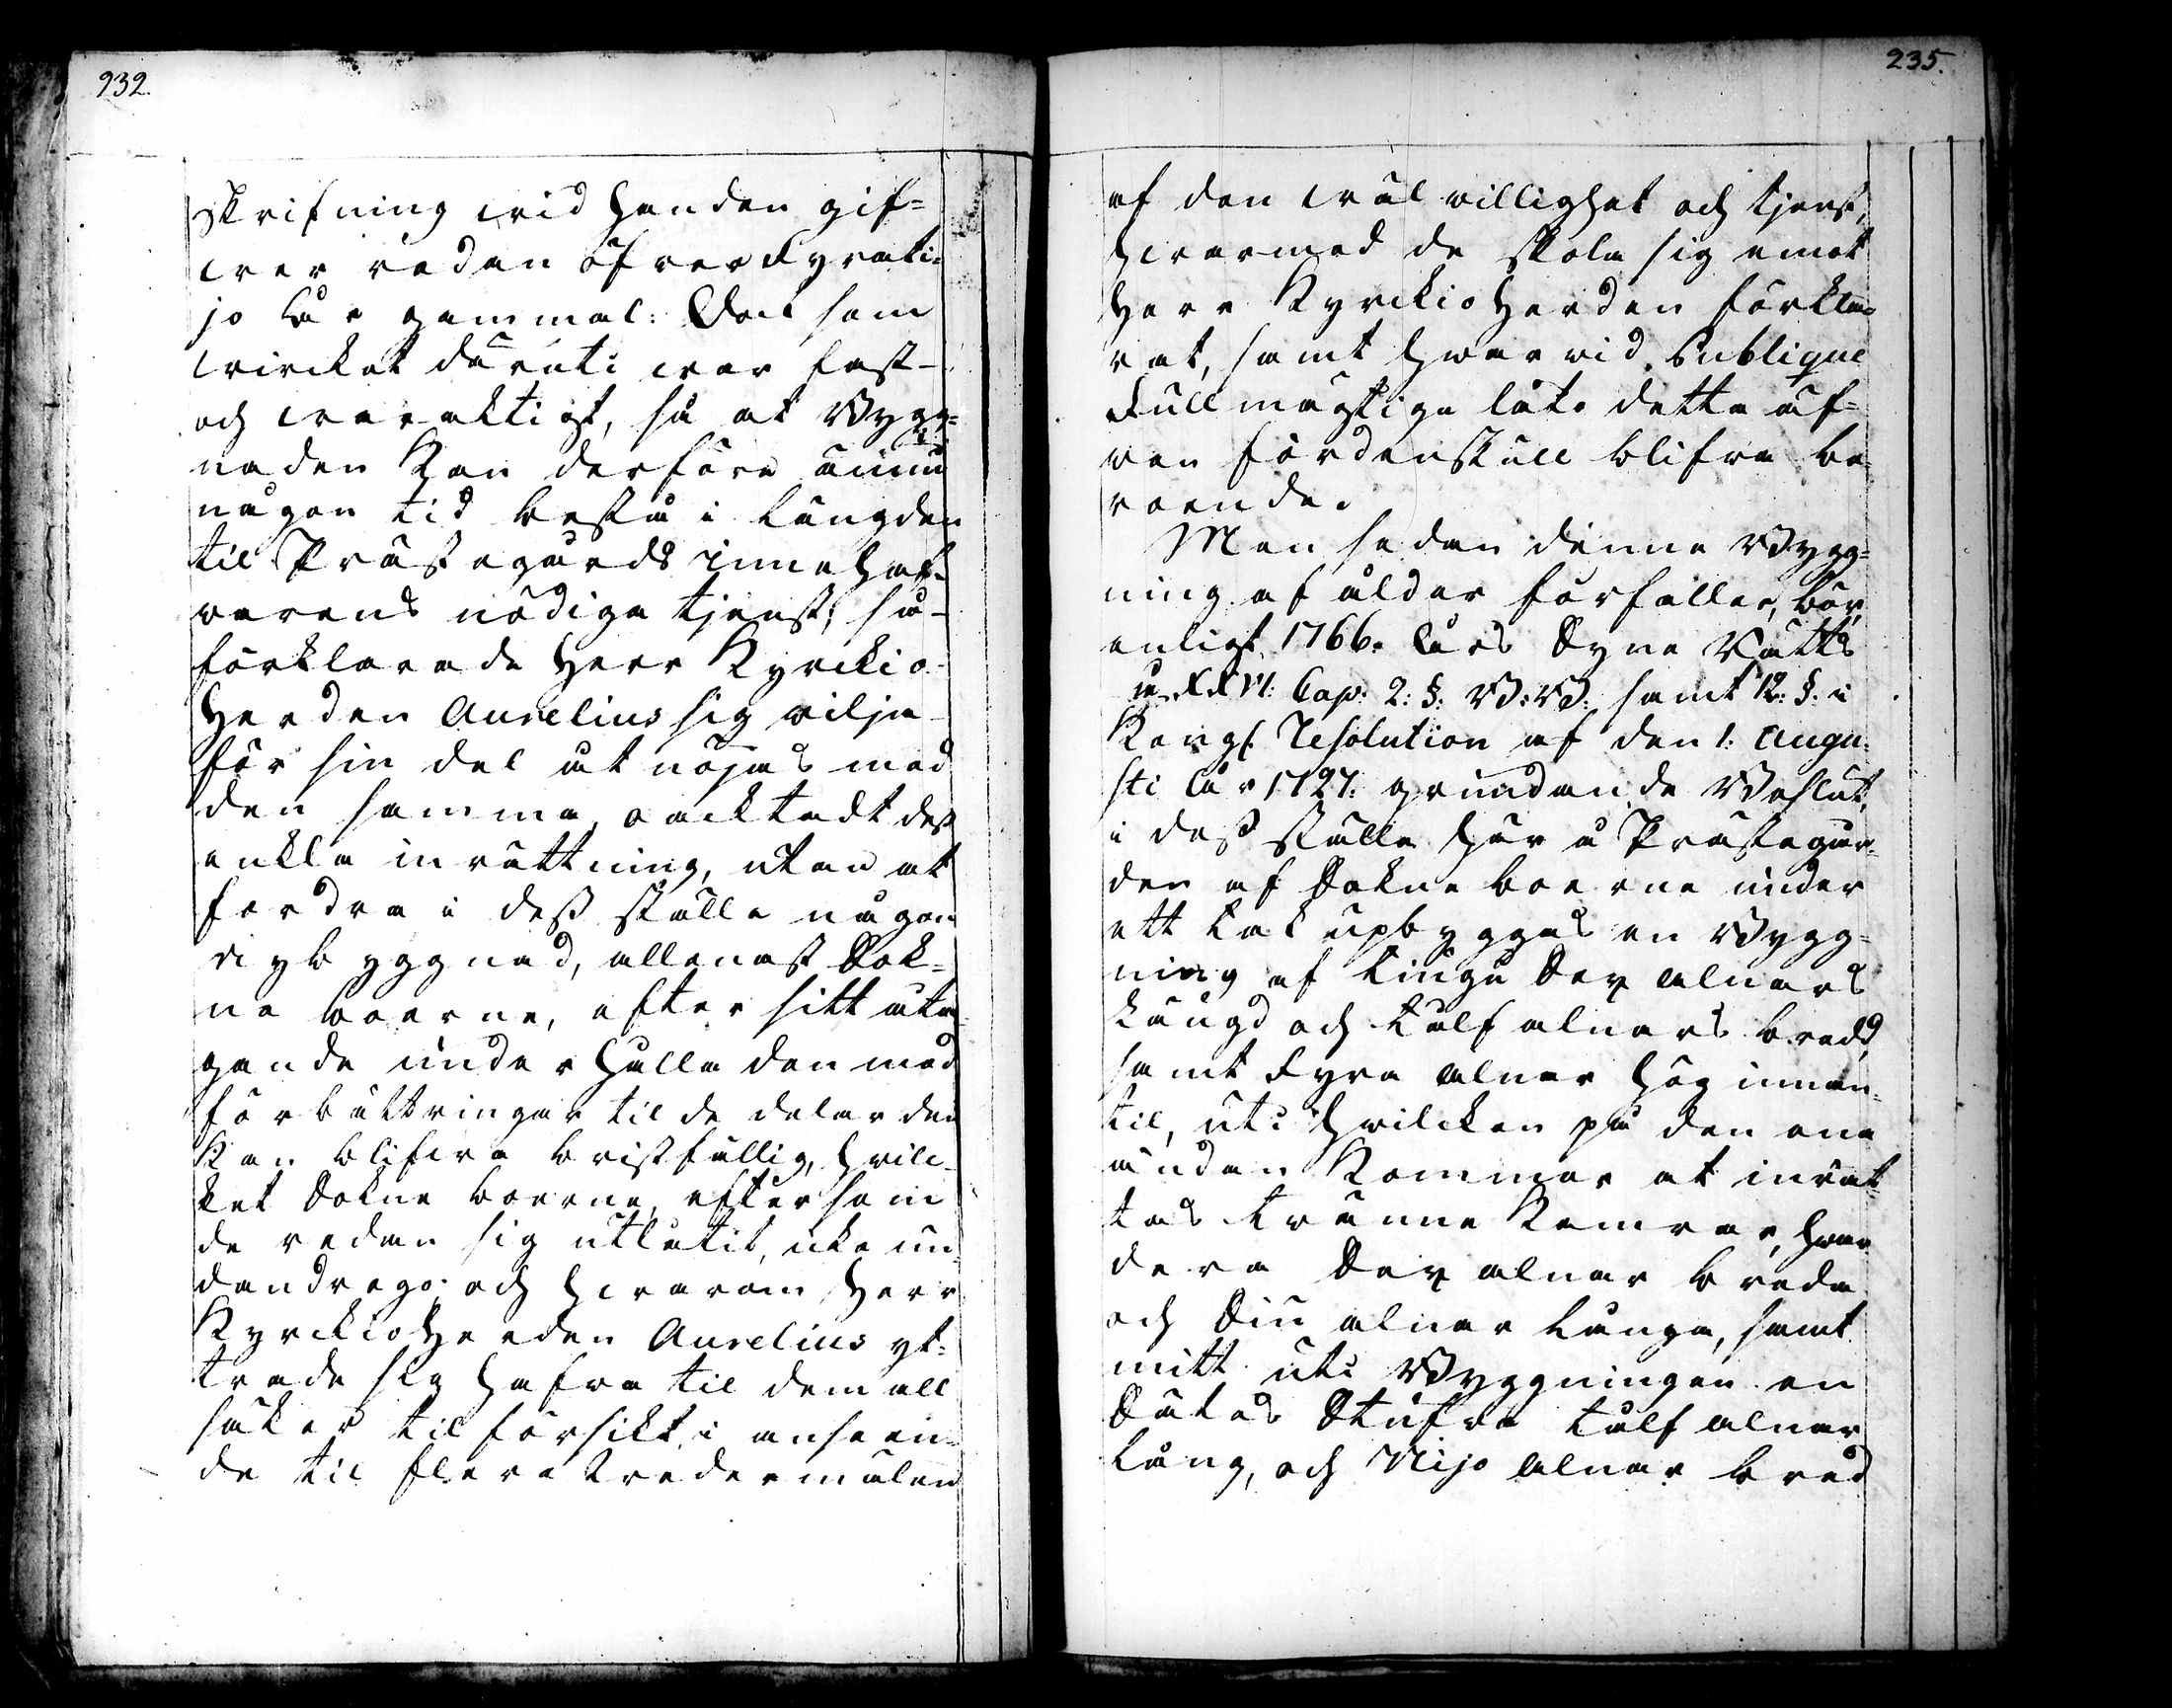 232.
skrifning wid handen gif-
wer redan öfwer Fyrati-
jo År gammal: Dock som
wircket däruti war fast-
och waraktigt, så at Bygg-
naden kan derföre ännu
någon tid bestå i längden
til Prästegårds innehaf-
warens nödiga tjenst; så-
förklarade Herr Kyrckio-
Herden Aurelius sig vilja-
för sin del åtnöjas med
den samma, oacktadt dess
enkla inrättning, utan at
fordra i dess ställe någon
nybyggnad, allenast Sok-
ne boerne, efter sitt åta-
gande underhålla den med
förbättringar til de delar den
kan blifwa bristfällig, hvilc-
ket Sokne boerne, eftersom
de redan sig utlåtit, icke un-
dandrogo; och hwarom Herr
Kyrckioherden Aurelius yt-
trade sig hafwa til dem all
säker tilförsikt, i anseen-
de til flera trädermålen
235.
af den wälvillighet och tjenst,
hwarmed de skola sig emot
Herr Kyrckio Herden förkla-
rat, samt hwarvid Publique
Fullmägtige låto detta äf-
ven fördenskull blifva be-
roende.
Men sedan denne Bygg-
ning af ålder förfaller, bör,
enligt 1766. Års Syne Rätts
å XXVI: Cap: 2: §: B:B: samt 12: §: i
Kongl. Resolution af den 1: Augu-
sti År 1727: grundande Beslut,
i dess ställe här å Prästegår-
den af Sokne boerne under
ett tak upbyggas en Bygg-
ning af Tiugu Sex alnars
längd och Tålf alnars bredd,
samt Fyra alnar hög innan-
til, uti hvilcken på den ena
ändan kommer at inrät-
tas tvänne Kamrar, hvar-
dera Sex alnar breda
och Siu alnar långa, samt
mitt uti Byggningen en
Sätes Stufva tålf alnar
lång, och Nijo alnar bred